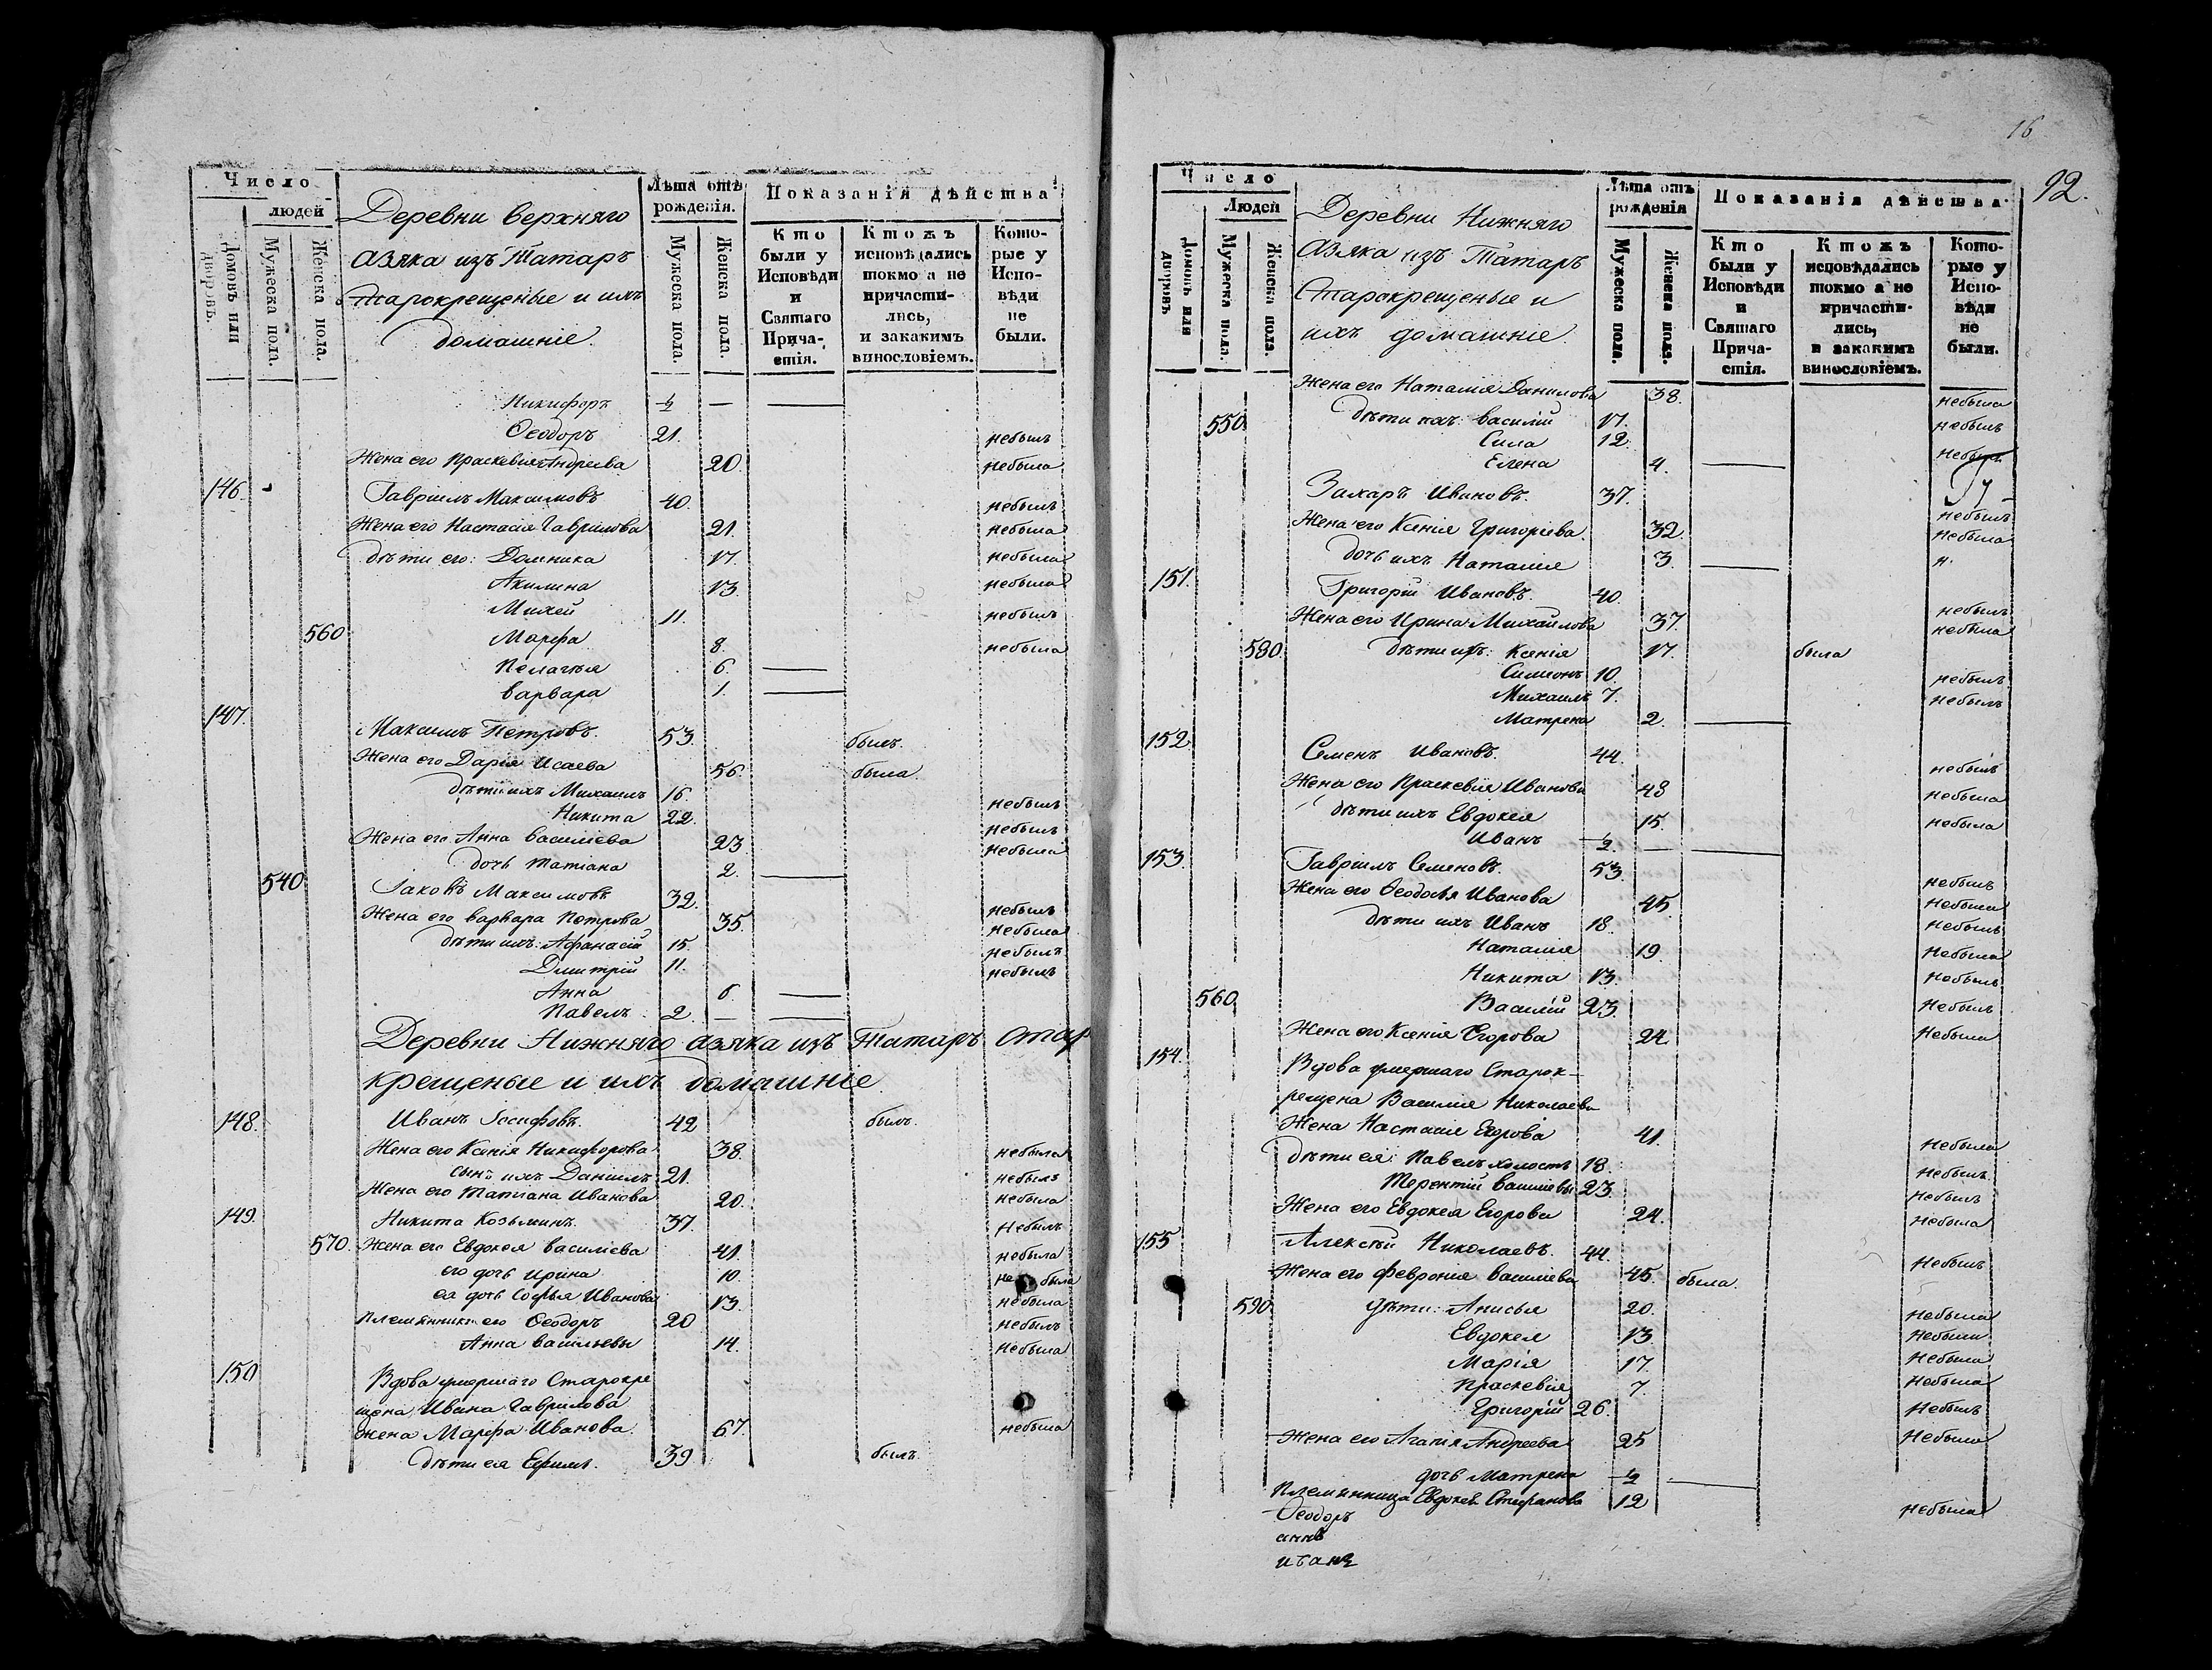 Число
людей
Домовъ или дворовъ.
Мужеска пола.
Женска пола.
Деревни Верхняго
Азяка изъ Татаръ
Старокрещеные и ихъ
домашніе.
Лѣта отъ рожденія.
Мужеска пола.
Женска пола.
Показанія дѣйства
Кто были у Исповѣди и Святаго Причастія.
Ктожъ исповѣдались токмо а не причастились, и закакимъ винословіемъ.
Которые у Исповѣди не были.
Никифоръ ½ — —
Ѳеодоръ 21. небылъ
Жена его Праскевия Андреева 20. небыла
146. Гавріилъ Максимовъ 40. небылъ
Жена его Настасія Гаврилова 21. небыла
дѣти его: Домника 17. небыла
Акилина 13. небыла
Михей 11. небылъ
560 Марфа 8. небыла
Пелагѣя 6. —
Варвара 1. —
147. Максимъ Петровъ. 53. былъ.
Жена его Дарія Исаева 56. была.
дѣти ихъ Михаилъ 16. небылъ
Никита 22. небылъ
Жена его Анна Василіева 23 небыла
дочь Татіана 2. —
540 Іаковъ Максимовъ 32. небылъ
Жена его Варвара Петрова 35. небыла
дѣти ихъ: Афанасій 15. небылъ
Дмитрій 11. небылъ
Анна 6. —
Павелъ 2. — —
Деревни Нижняго Азяка изъ Татаръ Стар
крещеные и ихъ домашніе
148. Иванъ Іосифовъ. 42 былъ.
Жена его Ксенія Никифорова 38. небыла
сынъ ихъ Даніилъ 21. небылъ
Жена его Татіана Иванова 20. небыла
149. Никита Козьминъ. 37. небылъ
570. Жена его Евдокея Василіева 41. небыла
его дочь Ирина 10. не была
ея дочь Софья Иванова 13. небыла
Племянники его Ѳеодоръ 20 небылъ
Анна Васильевы 14. небыла
150 Вдова умершаго Старокре
щена Ивана Гаврилова
жена Марфа Иванова. 67. небыла
дѣти ея Ефимъ. 39 былъ.
16
92.
Число
Людей
Домовъ или дворовъ
Мужеска пола.
Женска пола.
Деревни Нижняго
Азяка изъ Татаръ
Старокрещеные и
ихъ домашніе.
Лѣта отъ рожденія
Мужеска пола.
Женска пола.
Показанія дѣйства.
Кто были у Исповѣди и Святаго Причастія.
Ктожъ исповѣдались токмо а не причастились, и закакимъ винословіемъ.
Которые у Исповѣди не были.
Жена его Наталія Данилова 38. небыла
550 дѣти ихъ: Василій 17. небылъ
Сила 12. небылъ
Елена 4. —
Захаръ Ивановъ. 37. небылъ
Жена его Ксенія Григоріева. 32. небыла
дочь ихъ Наталія 3. — н.
151. Григорій Ивановъ. 40. небылъ
Жена его Ирина Михаилова 37. небыла
580. дѣти ихъ: Ксенія 17. была
Симіонъ 10. небылъ
Михаилъ 7. небылъ
Матрена 2. —
152. Семенъ Ивановъ. 44. небылъ
Жена его Праскевия Иванова 43 небыла
дѣти ихъ Евдокея 15. небыла
Иванъ ½ — —
153. Гавріилъ Семеновъ. 53. небылъ
Жена его Ѳеодосья Иванова 45 небыла
дѣти ихъ Иванъ 18. небылъ
Наталия 19. небыла
Никита 13. небылъ
560. Василій 23. небылъ
Жена его Ксенія Егорова 24 небыла
154. Вдова умершаго Старок-
рещена Василия Николаева
Жена Настасия Егорова 41. небыла
дѣти ея: Павелъ холостъ 18. небылъ
Терентій Василіевы 23. небылъ
Жена его Евдокея Егорова 24. небыла
155 Алексѣй Николаевъ. 44. небылъ
Жена его Феврония Василіева 45. была
590. дѣти: Анисья 20. небыла
Евдокея 13 небыла
Марія 17. небыла
Праскевия 7. небыла
Григорій 26. небылъ
Жена его Агапія Андреева 25 небыла
дочь Матрена ½ —
Племянница Евдокея Стефанова 12 небыла
Ѳеодоръ
анна
иванъ